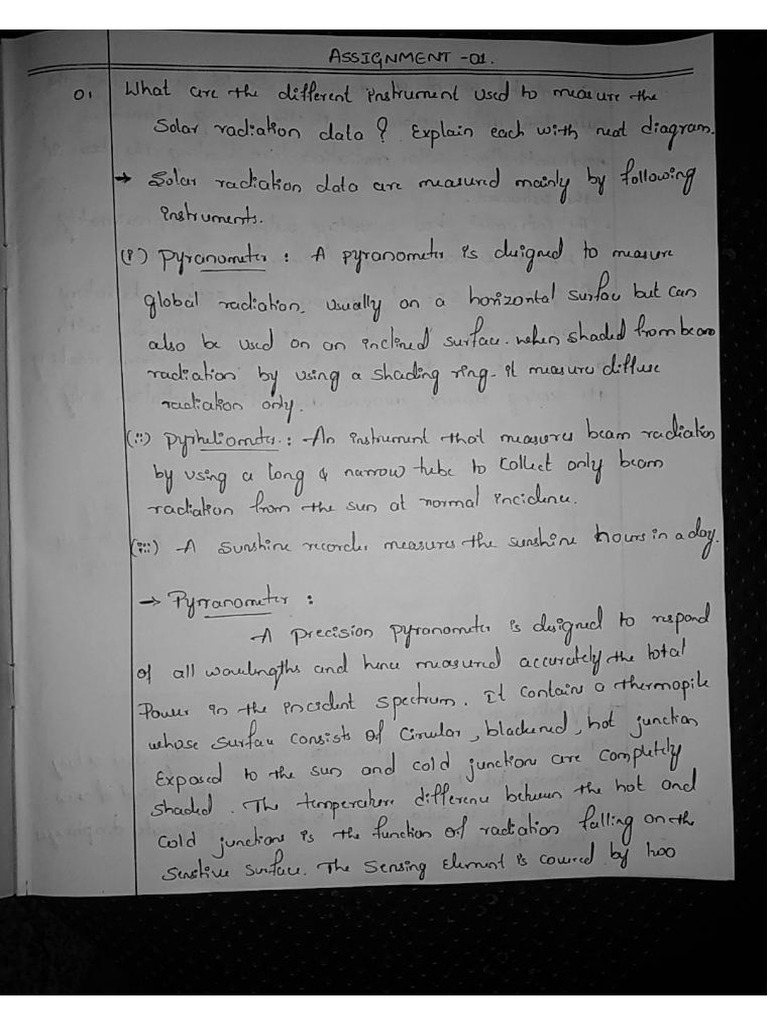 ASSIGNMENT -01.
01 What are the different instrument used to measure the
Solar radiation data ? Explain each with neat diagram.
→ Solar radiation data are measured mainly by following
instruments.
(i) Pyranometer : A pyranometer is designed to measure
global radiation. usually on a horizontal surface but can
also be used on an inclined surface. when shaded from beam
radiation by using a shading ring. it measure diffuse
radiation only.
(ii) Pyrheliometer : An instrument that measures beam radiation
by using a long & narrow tube to collect only beam
radiation from the sun at normal incidence.
(iii) A Sunshine recorder measures the sunshine hours in a day.
→ Pyrranometer :
A precision pyranometer is designed to respond
of all wavelingths and hence measured accurately the total
Power in the incident spectrum. It contains a thermopile
whose surface consists of Circular, blackened, hot junction
Exposed to the sun and cold junction are completely
Shaded. The temperature difference between the hot and
Cold junctions is the function of radiation falling on the
Sensitive surface. The Sensing Element is covered by two